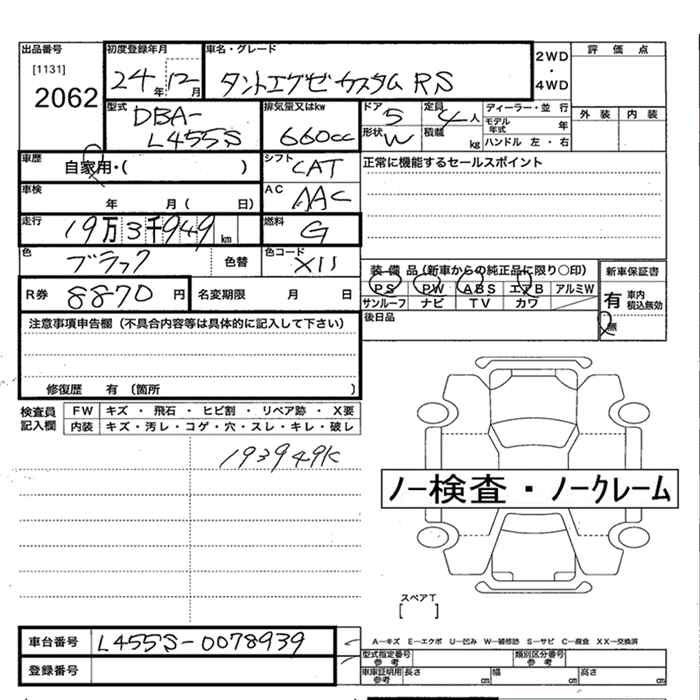 出品番号 初度登録年月 車名・グレード 2WD・4WD 評価点
[1131]
2062 24年12月 タントエグゼカスタム RS
外装 内装
型式 排気量又はkw ドア 定員 ディーラー・並行
DBA-L455S 660cc 5 4人 モデル年式 年
形状 W 積載 kg ハンドル 左・右
車歴 自家用・( ) シフト CAT 正常に機能するセールスポイント
車検 年 月( 日) AC AAC
走行 19万3千949km 燃料 G
色 ブラック 色替 色コード X11
装備品(新車からの純正品に限り○印) 新車保証書
R券 8870円 名変期限 月 日 PS PW ABS エアB アルミW 有 車内積込無効
サンルーフ ナビ TV カワ 無
注意事項申告欄(不具合内容等は具体的に記入して下さい) 後日品
修復歴 有 (箇所 )
検査員記入欄 FW キズ・飛石・ヒビ割・リペア跡・X要
内装 キズ・汚レ・コゲ・穴・スレ・キレ・破レ
193949K
ノー検査・ノークレーム
スペアT
[ ]
車台番号 L455S-0078939 A-キズ E-エクボ U-凹み W-補修跡 S-サビ C-腐食 XX-交換済
型式指定番号 参考 類別区分番号 参考
登録番号 車庫証明用 参考 長さ cm 幅 cm 高さ cm